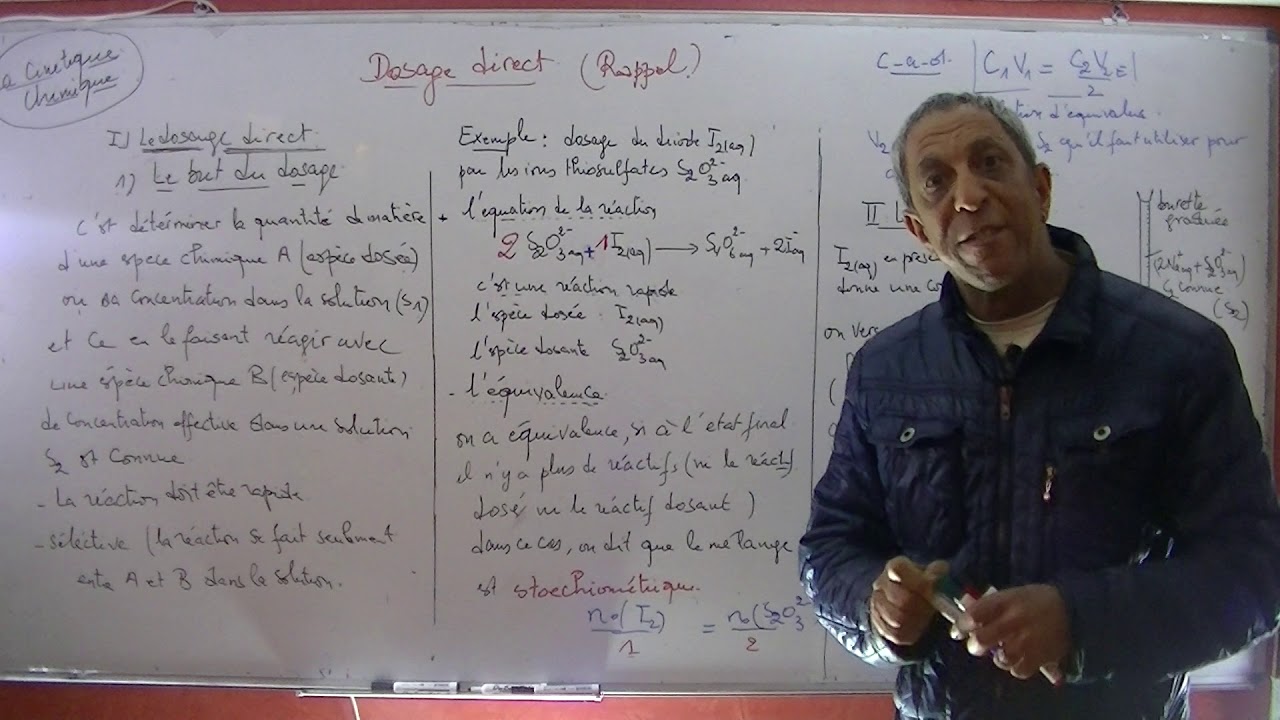 La Cinétique
Chimique
Dosage direct (Rappel)
I) Le dosage direct
1) Le but du dosage
c'est détérminer la quantité de matière
d'une espèce chimique A (espèce dosée)
ou sa concentration dans la solution (S1)
et ce en le faisant réagir avec
une espèce chimique B (espèce dosante)
de concentration effective dans une solution
S2 est connue
- La réaction doit être rapide
- sélective (la réaction se fait seulement
entre A et B dans la solution.
Exemple : dosage du diiode I2(aq)
par les ions thiosulfates S2O3²⁻aq
+ l'équation de la réaction
2 S2O3²⁻aq + 1 I2(aq) → S4O6²⁻aq + 2I⁻aq
c'est une réaction rapide
l'espèce dosée : I2(aq)
l'espèce dosante S2O3²⁻aq
- l'équivalence
on a équivalence, si à l'état final
il n'y a plus de réactifs (ni le réactif
dosé ni le réactif dosant )
dans ce cas, on dit que le mélange
est stoechiométrique.
n0(I2)/1 = n0(S2O3²⁻/2
c-a-d. |C1V1 = C2V2E/2|
d'équivalence
V2 S2 qu'il faut utiliser pour
II L
I2(aq) en prés
donne une co
on vers
burette
graduée
(2Na⁺aq + S2O3²⁻aq)
C2 connue
(S2)